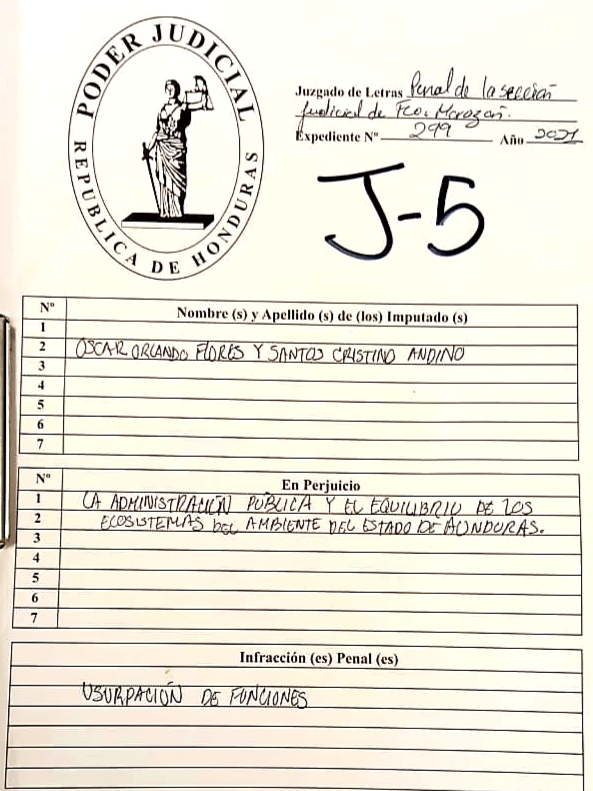 PODER JUDICIAL
REPUBLICA DE HONDURAS
Juzgado de Letras Penal de la sección
Judicial de Fco. Morazán.
Expediente Nº 299 Año 2021
J-5
Nº Nombre (s) y Apellido (s) de (los) Imputado (s)
1
2 OSCAR ORLANDO FLORES Y SANTOS CRISTINO ANDINO
3
4
5
6
7
Nº En Perjuicio
1 LA ADMINISTRACIÓN PÚBLICA Y EL EQUILIBRIO DE LOS
2 ECOSISTEMAS DEL AMBIENTE DEL ESTADO DE HONDURAS.
3
4
5
6
7
Infracción (es) Penal (es)
USURPACIÓN DE FUNCIONES